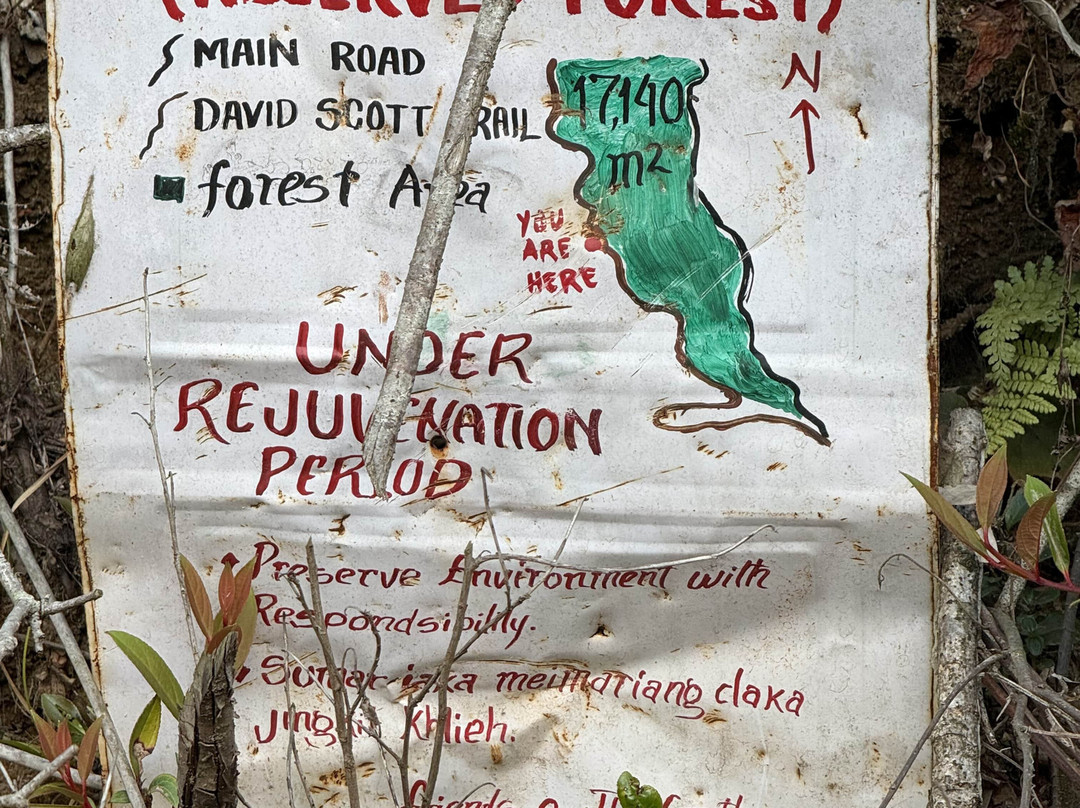 (RESERVE FOREST)
MAIN ROAD
DAVID SCOTT TRAIL
forest Area
17,140
m2
N
YOU
ARE
HERE
UNDER
REJUVENATION
PERIOD
Preserve Environment with
Respondsibility.
iaka meimariang daka
Jingkit Khlieh.
friends o